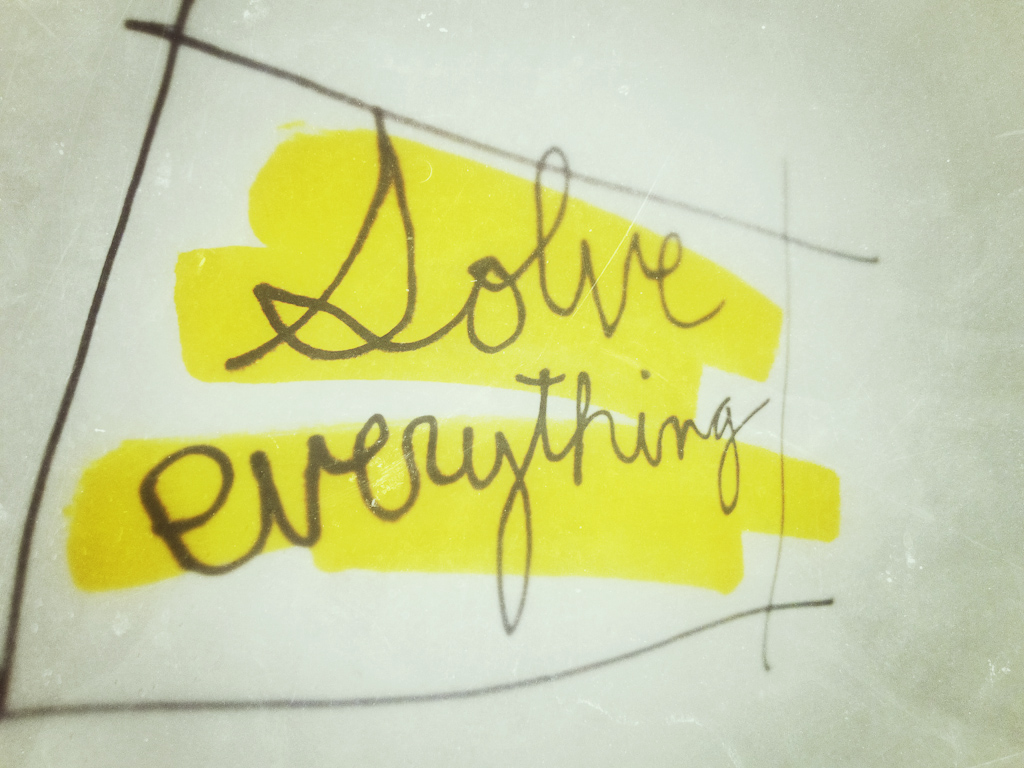 Solve
everything